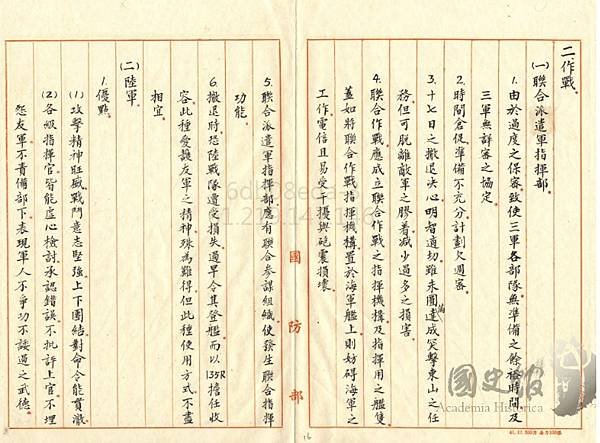 二作戰
(一)聯合派遣軍指揮部。
1.由於過度之保密致使三軍各部隊無準備之餘裕時間及
三軍無詳審之協定
2.時間倉促準備不充分計劃欠週審
3.十七日之撤退決心明智適切雖未圓滿達成突擊東山之任
務但可脫離敵軍之膠着減少過多之損害
4.聯合作戰應成立聯合作戰之指揮機構及指揮用之艦隻
蓋如將聯合作戰指揮機構置於海軍艦上則妨碍海軍之
工作電信且易受干擾與砲震損壞
5.聯合派遣軍指揮部應有聯合參謀組織使發生聯合指揮
功能。
6.撤退時恐陸戰隊遭受損失過早令其登艦而以135R擔任收
容此種愛護友軍之精神殊為難得但此種使用方式不盡
相宜。
(二)陸軍
1.優點
(1)攻擊精神旺盛戰鬥意志堅強上下團結對命令能貫澈
(2)各級指揮官皆能虛心檢討承認錯誤不批評上官不埋
怨友軍不責備部下表現軍人不爭功不諉過之武德。
國防部
16
國史館
Academia Historica